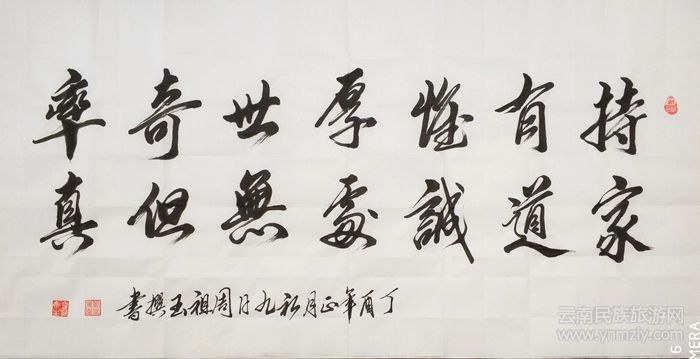 持家
有道
惟誠
厚處
世無
奇但
率真
丁酉年正月初九日周祖玉撰書
云南民族旅游网
www.ynmzly.com